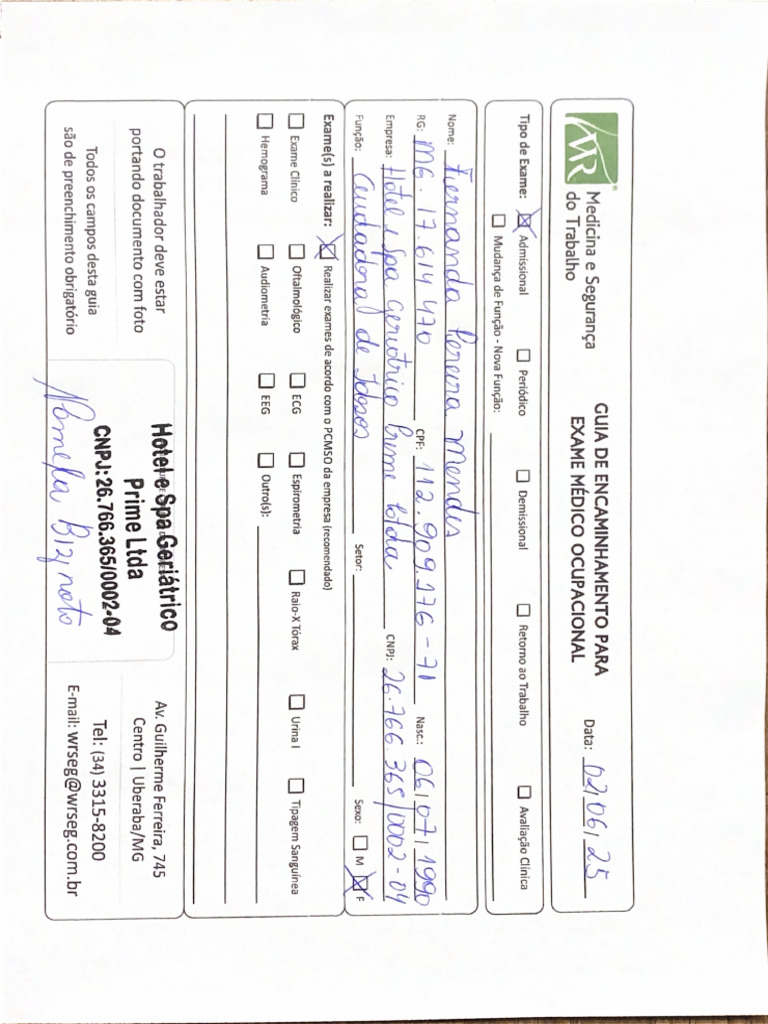 WR®
Medicina e Segurança
do Trabalho
GUIA DE ENCAMINHAMENTO PARA
EXAME MÉDICO OCUPACIONAL
Data: 02/06/25
Tipo de Exame: ☒ Admissional ☐ Periódico ☐ Demissional ☐ Retorno ao Trabalho ☐ Avaliação Clínica
☐ Mudança de Função - Nova Função:
Nome: Fernanda Pereira Mendes
RG: MG. 17.614 470 CPF: 112.909.176-71 Nasc.: 06/07/1990
Empresa: Hotel e Spa Geriotrico Prime Ltda CNPJ: 26.766.365/0002-04
Função: Cuidadora de Idosos Setor: Sexo: ☐ M ☒ F
Exame(s) a realizar: ☒ Realizar exames de acordo com o PCMSO da empresa (recomendado)
☐ Exame Clínico ☐ Oftalmológico ☐ ECG ☐ Espirometria ☐ Raio-X Tórax ☐ Urina I ☐ Tipagem Sanguínea
☐ Hemograma ☐ Audiometria ☐ EEG ☐ Outro(s):
O trabalhador deve estar
portando documento com foto
Todos os campos desta guia
são de preenchimento obrigatório
Hotel e Spa Geriátrico
Prime Ltda
CNPJ: 26.766.365/0002-04
Av. Guilherme Ferreira, 745
Centro | Uberaba/MG
Tel: (34) 3315-8200
E-mail: wrseg@wrseg.com.br